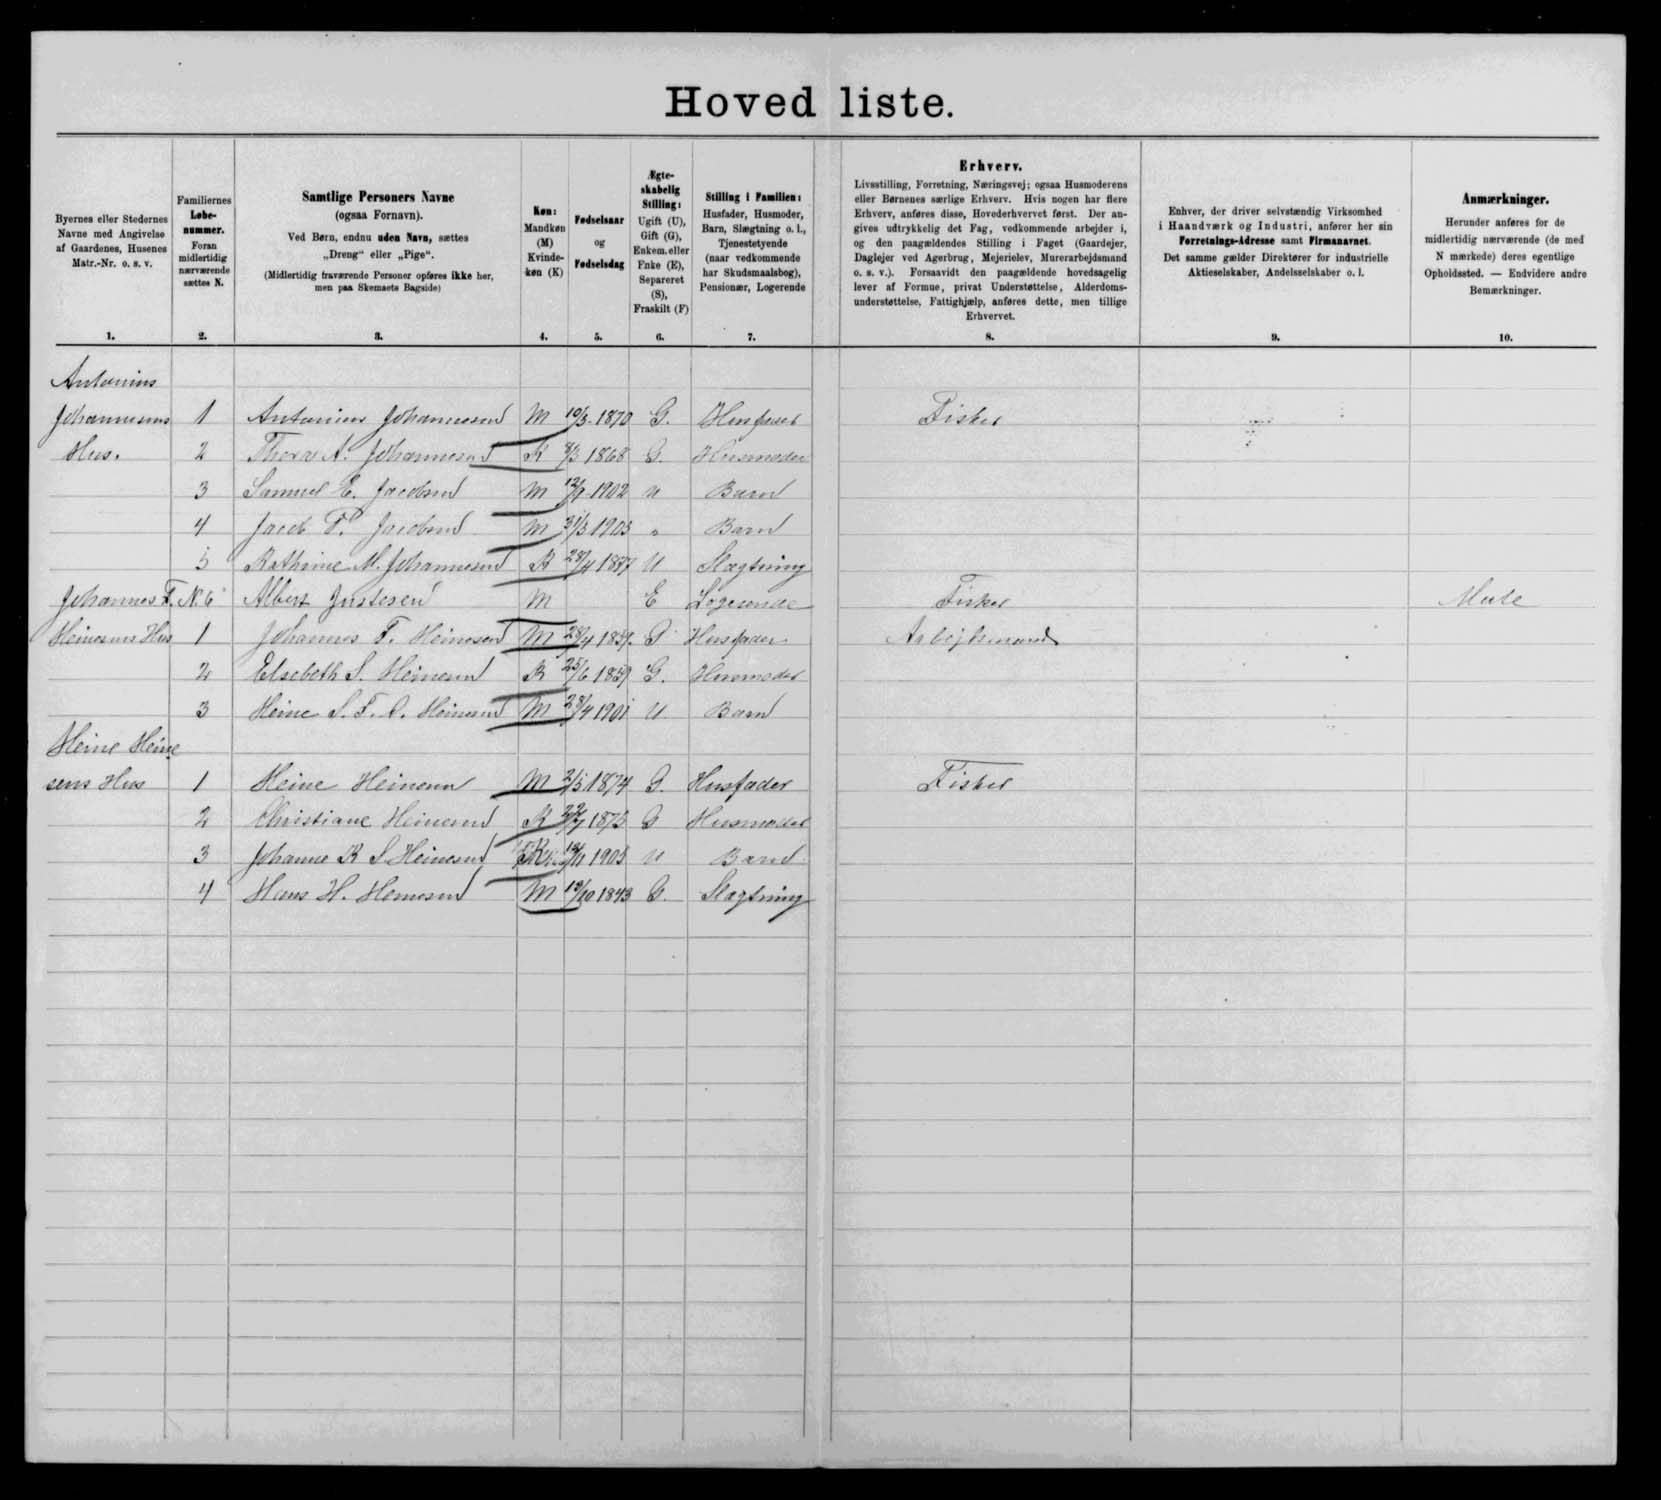 Hovedliste.
Byernes eller Stedernes
Navne med Angivelse
af Gaardenes, Husenes
Matr.-Nr. o. s. v.
1.
Familiernes
Løbe-
nummer.
Foran
midlertidig
nærværende
sættes N.
2.
Samtlige Personers Navne
(ogsaa Fornavn).
Ved Børn, endnu uden Navn, sættes
„Dreng“ eller „Pige“.
(Midlertidig fraværende Personer opføres ikke her,
men paa Skemaets Bagside)
3.
Køn:
Mandkøn
(M)
Kvinde-
køn (K)
4.
Fødselsaar
og
Fødselsdag
5.
Ægte-
skabelig
Stilling:
Ugift (U),
Gift (G),
Enkem. eller
Enke (E),
Separeret
(S),
Fraskilt (F)
6.
Stilling i Familien:
Husfader, Husmoder,
Barn, Slægtning o. l.,
Tjenestetyende
(naar vedkommende
har Skudsmaalsbog),
Pensionær, Logerende
7.
Erhverv.
Livsstilling, Forretning, Næringsvej; ogsaa Husmoderens
eller Børnenes særlige Erhverv. Hvis nogen har flere
Erhverv, anføres disse, Hovederhvervet først. Der an-
gives udtrykkelig det Fag, vedkommende arbejder i,
og den paagældendes Stilling i Faget (Gaardejer,
Daglejer ved Agerbrug, Mejerielev, Murerarbejdsmand
o. s. v.). Forsaavidt den paagældende hovedsagelig
lever af Formue, privat Understøttelse, Alderdoms-
understøttelse, Fattighjælp, anføres dette, men tillige
Erhvervet.
8.
Enhver, der driver selvstændig Virksomhed
i Haandværk og Industri, anfører her sin
Forretnings-Adresse samt Firmanavnet.
Det samme gælder Direktører for industrielle
Aktieselskaber, Andelsselskaber o. l.
9.
Anmærkninger.
Herunder anføres for de
midlertidig nærværende (de med
N mærkede) deres egentlige
Opholdssted. — Endvidere andre
Bemærkninger.
10.
Antonius
Johannesens 1 Antonius Johannesen M 10/3 1870 G. Husfader Fisker
Hus. 2 Thora A. Johannesen K 8/3 1868 G. Husmoder
3 Samuel E. Jacobsen M 1902 U Barn
4 Jacob P. Jacobsen M 31/3 1903 " Barn
5 Kathrine M. Johannesen K 28/4 1887 U Slægtning
Johannes F. N. 6 Albert Justesen M E Logerende Fisker Mule
Heinesens Hus 1 Johannes F. Heinesen M G Husfader Arbejdsmand
2 Elsebeth S. Heinesen K 25/6 1859 G. Husmoder
3 Heine S. F. O. Heinesen M 28/4 1901 U Barn
Heine Heine
sens Hus 1 Heine Heinesen M 2/5 1874 G. Husfader Fisker
2 Christiane Heinesen K 1875 G Husmoder
3 Johanne K S Heinesen K 1905 U Barn
4 Hans H. Heinesen M 19/10 1843 G. Slægtning